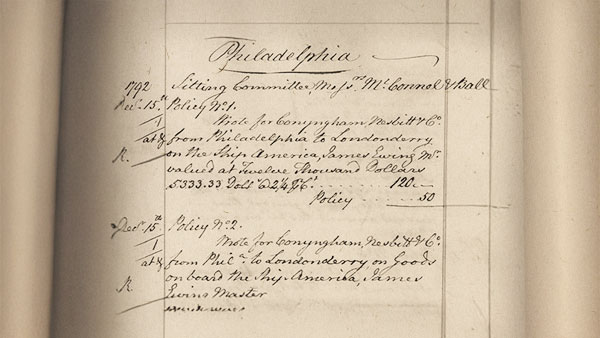 Philadelphia
1792 Sitting Committee, Mess.rs Mc.Connol & Ball
Dec.r 15.th Policy No1.
1 Wrote for Conyngham, Nesbitt & Co.
at & from Philadelphia to Londonderry
R. on the Ship America, James Ewing Mr.
valued at Twelve Thousand Dollars
5333.33 Doll.s @ 2¼ 120
Policy 50
Dec.r 15.th Policy No.2.
1 Wrote for Conyngham, Nesbitt & Co.
at & from Phil.a to Londonderry on Goods
R. on board the Ship America, James
Ewing Master